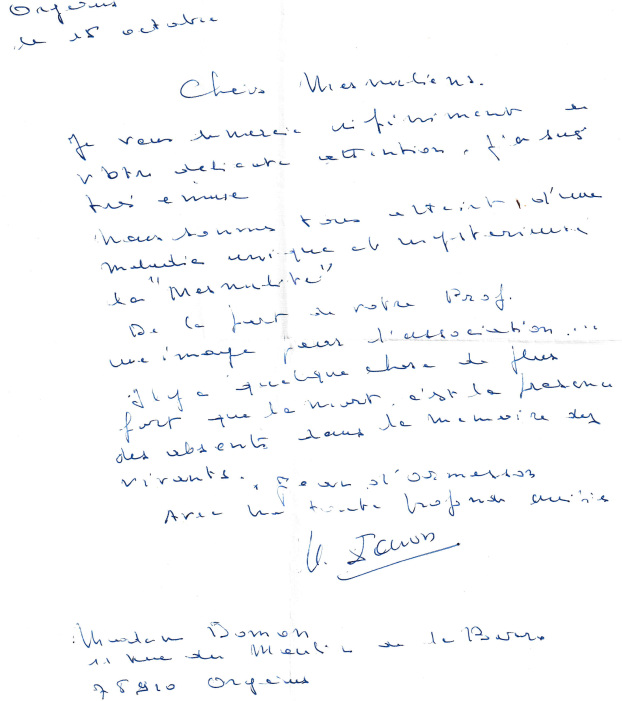 Orgerus
le 15 octobre
Chers Mesnuliens.
Je vous remercie infiniment de
votre délicate attention, j'en suis
très émue
Nous sommes tous atteint, d'une
maladie unique et mystérieuse
la "Mesnulite"
De la part de votre Prof.
une image pour l'association....
Il y a quelque chose de plus
fort que la mort, c'est la présence
des absents dans la mémoire des
vivants. Jean d'Ormesson
Avec ma toute profonde amitié
Madame Domon
11 Rue du Moulin de la
78910 Orgerus